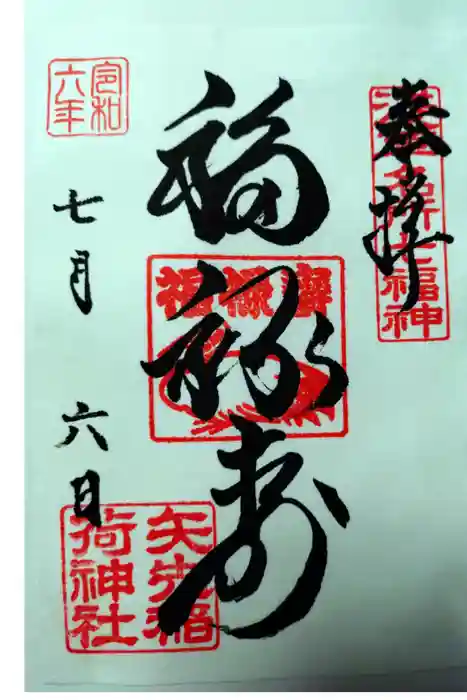 奉拝
浅草名所七福神
福禄寿
福禄壽
令和六年
七月六日
矢先稲
荷神社